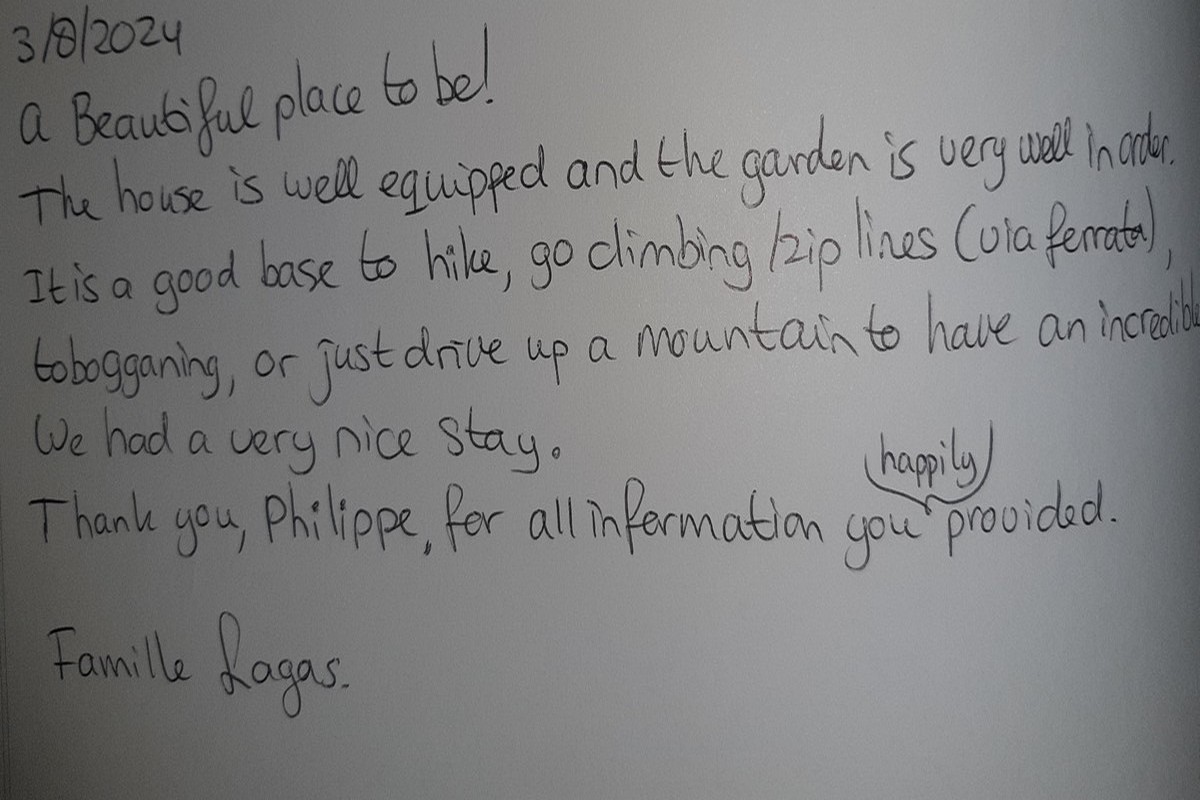 3/8/2024
A Beautiful place to be!
The house is well equipped and the garden is very well in order.
It is a good base to hike, go climbing /zip lines (via ferrata),
tobogganing, or just drive up a mountain to have an incredible
We had a very nice stay.
happily
Thank you, Philippe, for all information you provided.
Famille Lagas.